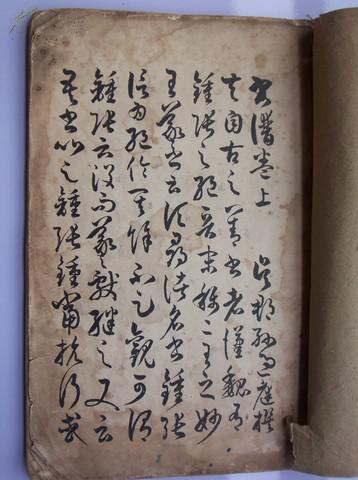 書譜卷上 吳郡孫過庭撰
夫自古之善書者漢魏有
鍾張之絕晉末稱二王之妙
王羲之云頃尋諸名書鍾張
信為絕倫其餘不足觀可謂
鍾張云沒而羲獻繼之又云
吾書比之鍾張鍾當抗行或